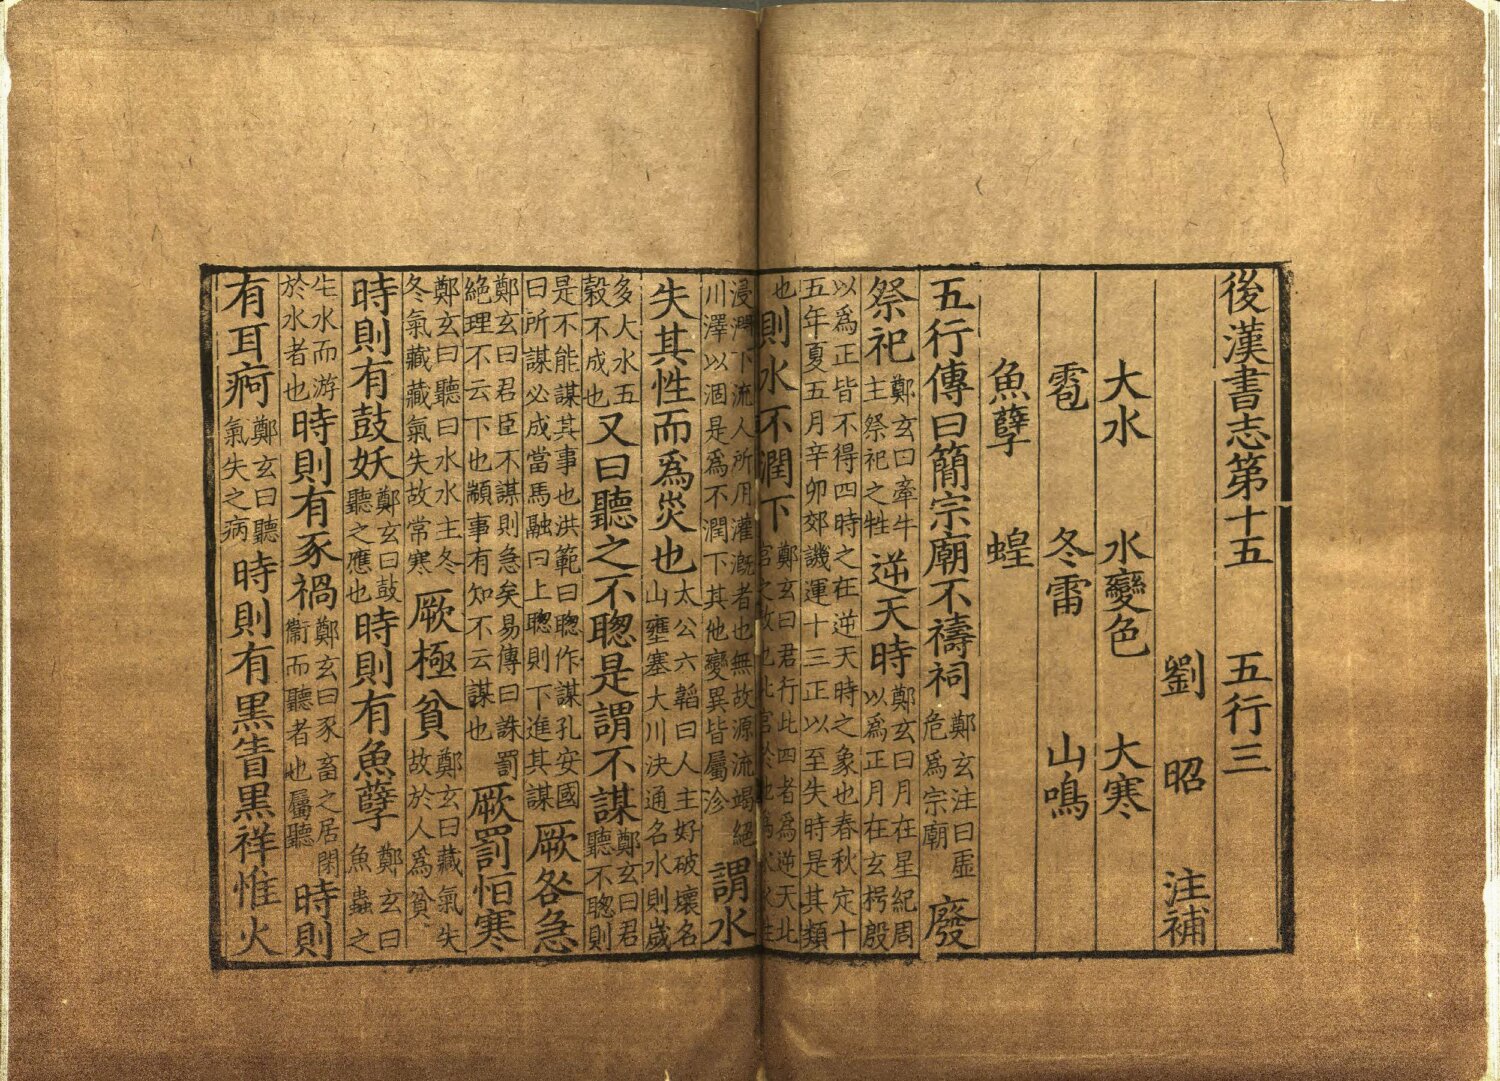 後漢書志第十五 五行三
劉昭 注補
大水 水變色 大寒
雹 冬雷 山鳴
魚孽 蝗
五行傳曰簡宗廟不禱祠鄭玄注曰虛危爲宗廟廢
祭祀鄭玄曰牽牛主祭祀之牲逆天時鄭玄曰月在星紀周以爲正月在玄枵殷
以爲正皆不得四時之在逆天時之象也春秋定十五年夏五月辛卯郊譏運十三正以至失時是其類
也則水不潤下鄭玄曰君行此四者爲逆天北宮之政也北宮於地爲水水性
浸潤下流人所用灌漑者也無故源流竭絕川澤以涸是爲不潤下其他變異皆屬沴謂水
失其性而爲災也太公六韜曰人主好破壞名山壅塞大川決通名水則歲
多大水五穀不成也又曰聽之不聦是謂不謀鄭玄曰君聽不聦則
是不能謀其事也洪範曰聦作謀孔安國曰所謀必成當馬融曰上聦則下進其謀厥咎急
鄭玄曰君臣不謀則急矣易傳曰誅罰絕理不云下也顓事有知不云謀也厥罰恒寒
鄭玄曰聽曰水水主冬冬氣藏藏氣失故常寒厥極貧鄭玄曰藏氣失故於人爲貧
時則有鼓妖鄭玄曰鼓聽之應也時則有魚孽鄭玄曰魚蟲之
生水而游於水者也時則有豕禍鄭玄曰豕畜之居閑衞而聽者也屬聽時則
有耳痾鄭玄曰聽氣失之病時則有黑眚黑祥惟火